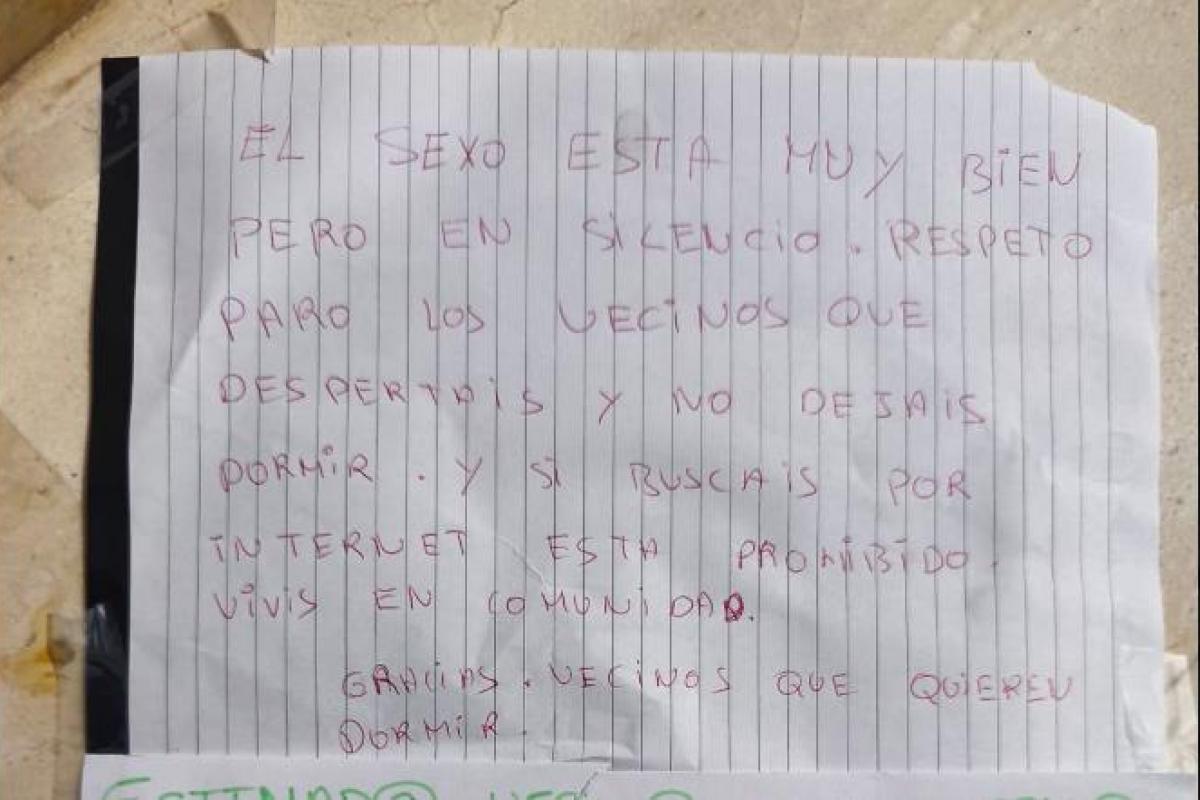 EL SEXO ESTA MUY BIEN
PERO EN SILENCIO. RESPETO
PARA LOS VECINOS QUE
DESPERTAIS Y NO DEJAIS
DORMIR. Y SI BUSCAIS POR
INTERNET ESTA PROHIBIDO.
VIVIS EN COMUNIDAD.
GRACIAS. VECINOS QUE QUIEREN
DORMIR.